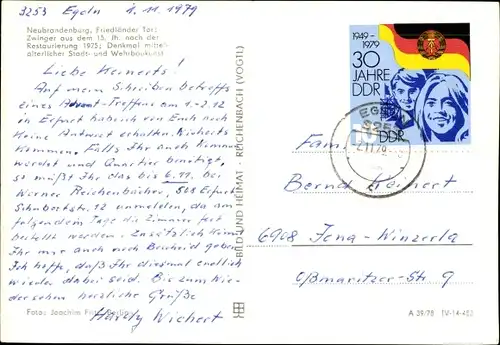 3253 Egeln 1.11.1979
Neubrandenburg, Friedländer Tor:
Zwinger aus dem 15. Jh. nach der
Restaurierung 1975; Denkmal mittel-
alterlicher Stadt- und Wehrbaukunst
Liebe Heinerts!
Auf mein Schreiben betreffs
eines Advent-Treffens am 1.-2.12
in Erfurt habe ich von Euch noch
keine Antwort erhalten. Wicherts
kommen. Falls Ihr auch kommen
werdet und Quartier benötigt,
so müßt Ihr das bis 6.11. bei
Werner Reichenbächer, 508 Erfurt
12 anmelden, da am
folgendem Tage die Zimmer fest
bestellt werden. Zusätzlich könnt
Ihr mir auch noch Bescheid geben.
Ich hoffe, daß Ihr diesmal endlich
wieder dabei seid. Bis zum Wie-
dersehen herzliche Grüße
Hardy Wichert
Foto: Joachim Berlin
BILD UND HEIMAT · REICHENBACH (VOGTL)
1949-
1979
30
JAHRE
DDR
DDR
EGELN
3253
Fam.
Bernd Heinert
6908 Jena-Winzerla
Oßmaritzer-Str. 9
A 39/78 IV-14-483